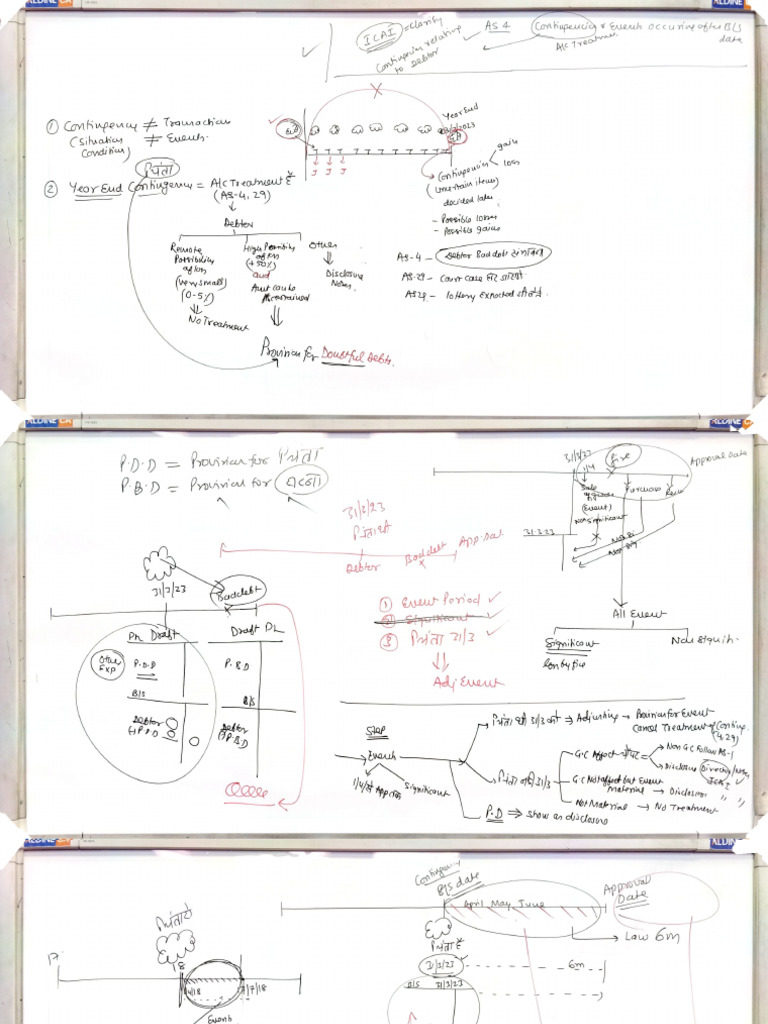 ICAI = clarity
AS 4
Contingencies & Events Occuring after B/S date
A/c Treatment
Contingencies relating to Debtor
① Contingency ≠ Transaction
(Situation Condition) ≠ Events
Year End
31/3/2023
gain
loss
Contingencies
(Uncertain items)
decided later
- Possible losses
- Possible gains
चिंता
② Year End Contingency = A/c Treatment है
(AS-4, 29)
Debtor
Remote Possibility of loss
(very small)
(0-5%)
No Treatment
High Possibility of loss
(+50%)
and
Amt could be Ascertained
Other
Disclosure Notes
Provision for Doubtful Debts.
AS-4 - Debtor Baddebt
AS-29 - Court case
AS 29 - lottery Expected
P.D.D = Provision for चिंता
P.B.D = Provision for
Fire
Approval Date
1/4
Sale of goods
(Event)
Not Significant
Purchase
31-3-23
All Event
Significant
loss by fire
Non Signifi.
31/3/23
Debtor
Baddebt
App. Dat.
① Event Period ✓
② Significant
③ चिंता 31/3 ✓
Adj Event
31/3/23
Baddebt
PL Draft
Draft PL
Other Exp
P.D.D
P.B.D
B/S
B/S
Debtor
(-) P.D.D
Debtor
(-) P.B.D
STEP
Events
1/4 से Approv
Significant
चिंता थी 31/3 को ⇒ Adjusting → Provision for Event
Cancel Treatment of Conting.
(4, 29)
चिंता नहीं 31/3
G.C Affect
Non G.C Follow AS-1
Disclosure Directors / Notes
ICAI
G.C Not affect but Event Material → Disclosure " "
Not Material → No Treatment
P.D ⇒ show as disclosure
Contingency
B/S date
April, May, June
Approval Date
Law 6m
चिंता है
31/3/23
6m
B/S 31/3/23
17
18
4/18
7/18
Events